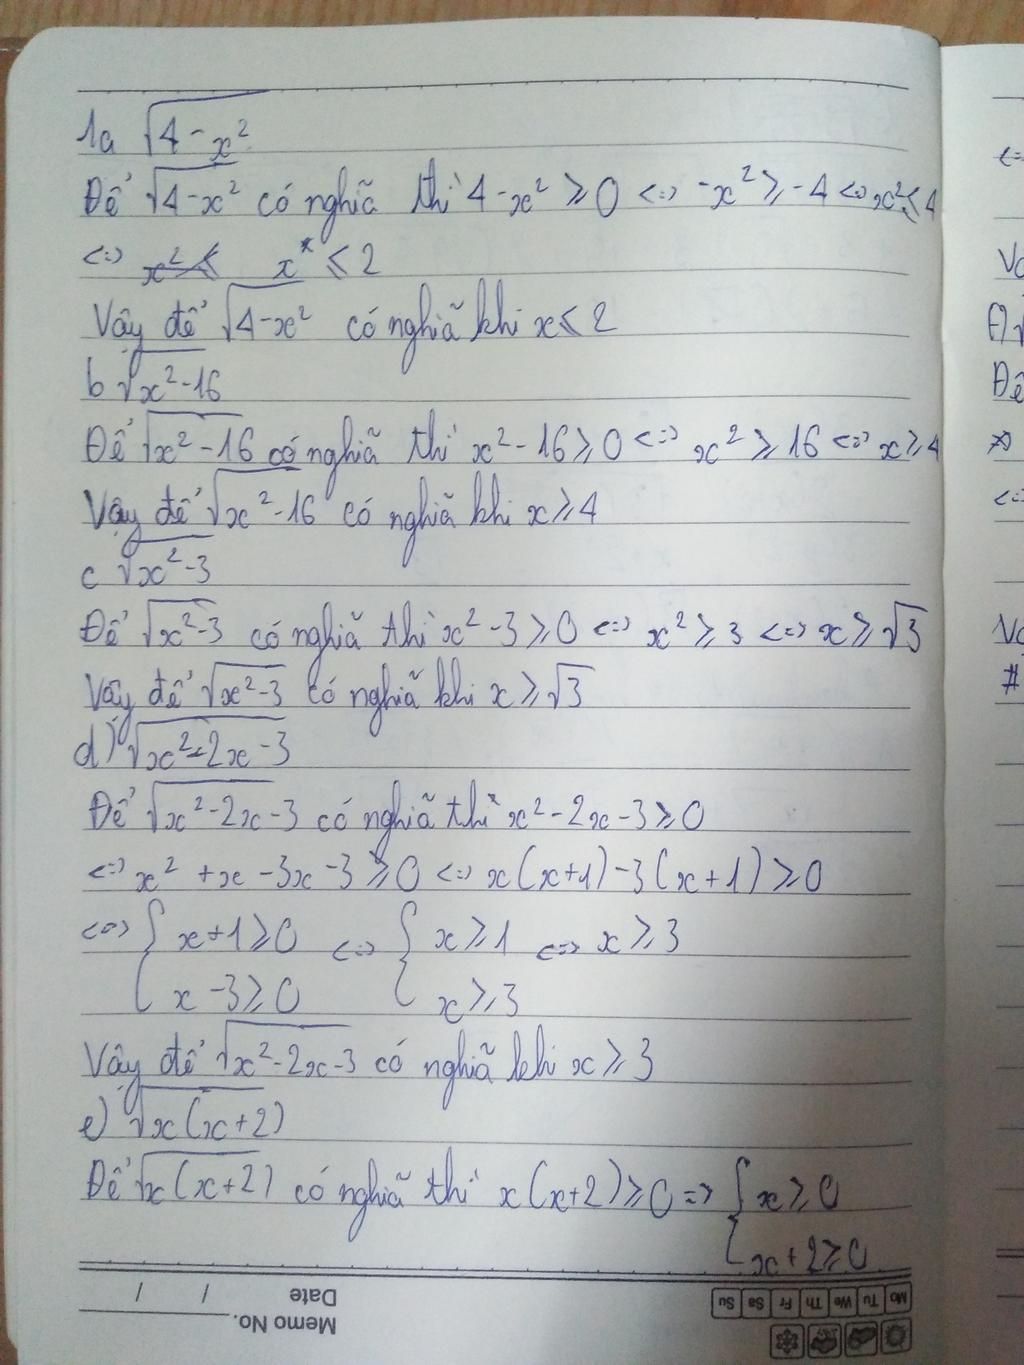 1a √4-x²
Để √4-x² có nghĩã thì 4-x² ≥ 0 <=> -x² ≥ -4 <=> x² ≤ 4
<=> x² ≤ x ≤ 2
Vậy để √4-x² có nghĩã khi x ≤ 2
b √x²-16
Để √x²-16 có nghĩã thì x²-16 ≥ 0 <=> x² ≥ 16 <=> x ≥ 4
Vậy để √x²-16 có nghĩã khi x ≥ 4
c √x²-3
Để √x²-3 có nghĩã thì x²-3 ≥ 0 <=> x² ≥ 3 <=> x ≥ √3
Vậy để √x²-3 có nghĩã khi x ≥ √3
d) √x²-2x-3
Để √x²-2x-3 có nghĩã thì x²-2x-3 ≥ 0
<=> x² +x -3x -3 ≥ 0 <=> x(x+1)-3(x+1) ≥ 0
<=> { x+1 ≥ 0 <=> { x ≥ 1 <=> x ≥ 3
x-3 ≥ 0 x ≥ 3
Vậy để √x²-2x-3 có nghĩã khi x ≥ 3
e) √x(x+2)
Để √x(x+2) có nghĩã thì x(x+2) ≥ 0 => { x ≥ 0
x+2 ≥ 0
Memo No.
Date / /
Mo Tu We Th Fr Sa Su